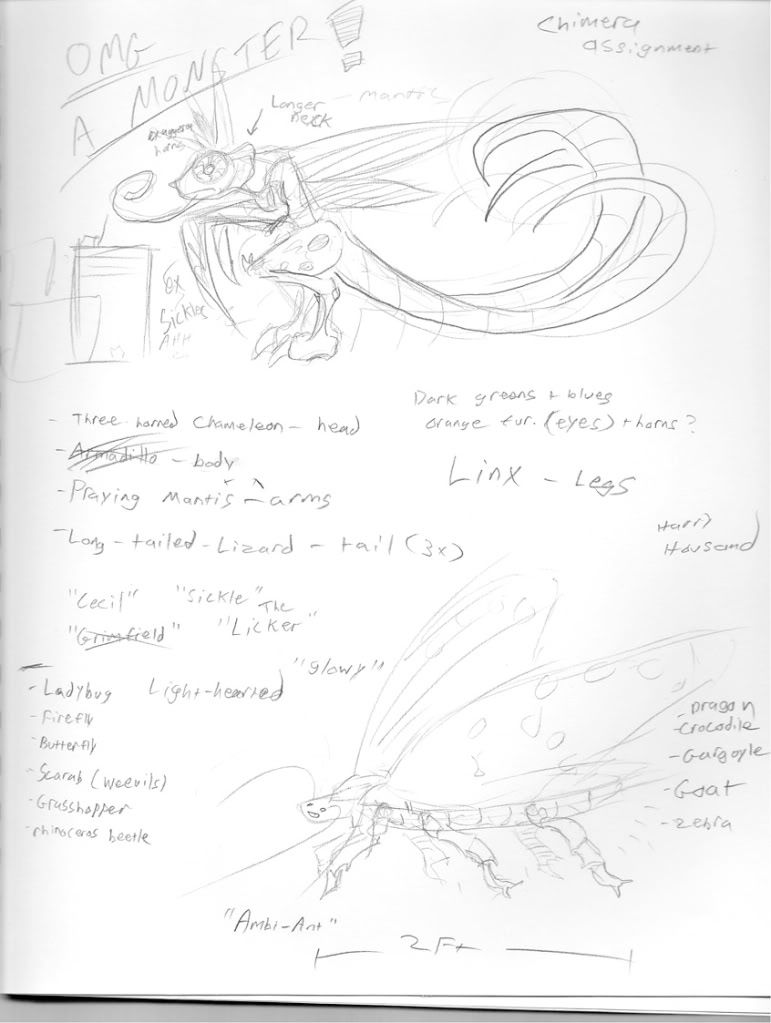 OMG
A MONSTER!
Chimera
assignment
Longer
neck
- mantis
horns
Sickles
AHH
- Three horned Chameleon - head
- Armadillo - body
- Praying mantis - arms
- Long-tailed-Lizard - tail (3x)
Dark greens + blues
orange fur. (eyes) + horns?
Linx - Legs
"Cecil" "Sickle"
The
"Grimfield" "Licker"
"glowy"
- Ladybug Light-hearted
- Firefly
- Butterfly
- Scarab (weevils)
- Grasshopper
- rhinoceros beetle
- Dragon
- Crocodile
- Gargoyle
- Goat
- Zebra
"Ambi-Ant"
2 Ft